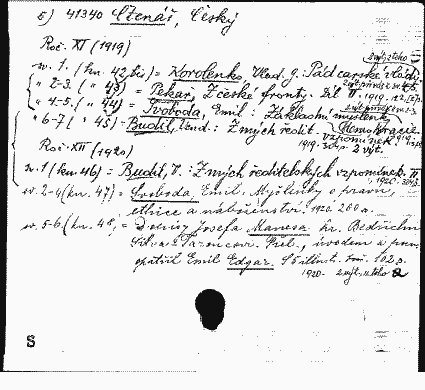 5) 41340 Čtenář, Český
Roč. XI (1919)
zvýš. toho
č. 1. (kn. 42, bis) = Korolenko, Vlad. g.: Pád carské vlády
" 2-3. ( " 43) = Pekař, Z české fronty. Díl II. 1919.
" 4-5. ( " 44) = Svoboda, Emil: Základní myšlenk
" 6-7 ( " 45) = Budil, Vend.: Z mých ředit. vzpomínek
demokracie 1919.
1919.
Roč. XII (1920)
č. 1 (kn. 46) = Budil, V.: Z mých ředitelských vzpomínek. II
1920.
č. 2-4 (kn. 47) = Svoboda, Emil, Myšlenky o právu,
ethice a náboženství. 1920. 200 s.
č. 5-6. (kn. 48, = Deníky Josefa Manesa hr. Bedřichu
Silva Tarouccovi. Přel., úvodem a pozn.
opatřil Emil Edgar. S illust. 102 s.
1920. 2 výt. toho
S